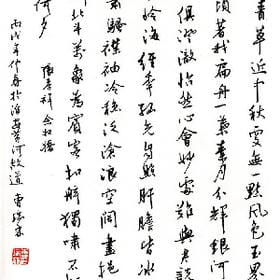 青草近中秋更無一點風色玉界
頃著我扁舟一葉素月分輝銀河
俱澄澈怡然心會妙處難與君說
岭海經年孤光自照肝膽皆冰
騷襟袖冷穩泛滄浪空闊盡挹
北斗萬象為賓客扣舷獨嘯不
何夕 張孝祥念奴嬌
丙戌年仲春於河故道